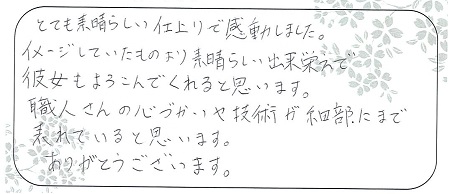 とても素晴らしい仕上りで感動しました。
イメージしていたものより素晴らしい出来栄えで
彼女もよろこんでくれると思います。
職人さんの心づかいや技術が細部にまで
表れていると思います。
ありがとうございます。